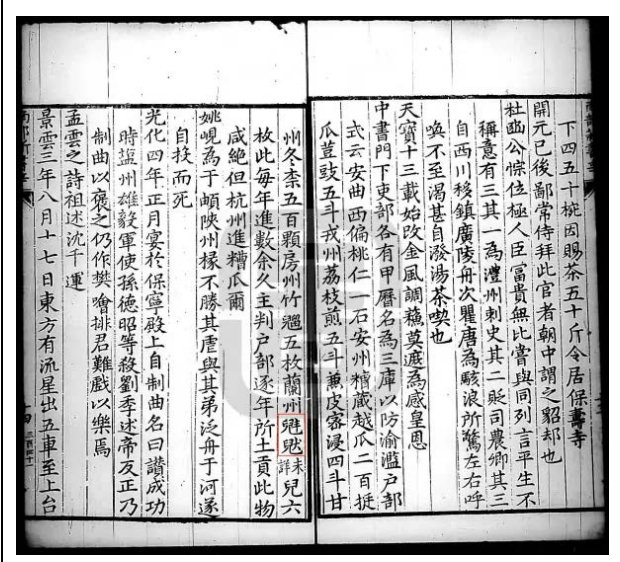 下四五十椀因賜茶五十斤令居保壽寺
開元已後鄙常侍拜此官者朝中謂之貂却也
杜豳公悰位極人臣富貴無比嘗與同列言平生不
稱意有三其一為澧州刺史其二貶司農卿其三
自西川移鎮廣陵舟次瞿唐為駭浪所驚左右呼
喚不至渴甚自潑湯茶喫也
天寶十三載始改金風調蘇莫遮為感皇恩
中書門下吏部各有甲曆名為三庫以防渝濫户部
式云安曲西偏桃仁一石安州糟藏越瓜二百挺
瓜荳豉五斗戎州荔枝煎五斗兼皮蜜浸四斗甘
州冬柰五百顆房州竹䶉五枚蘭州未詳兒六
枚此每年進數余久主判户部逐年所土貢此物
咸絶但杭州進糟瓜爾
姚峴為于頔陝州掾不勝其虐與其弟泛舟于河遂
自投而死
光化四年正月宴於保寧殿上自制曲名曰讚成功
時鹽州雄毅軍使孫德昭等殺劉季述帝反正乃
制曲以褒之仍作樊噲排君難戲以樂焉
孟雲之詩祖述沈千運
景雲三年八月十七日東方有流星出五車至上台